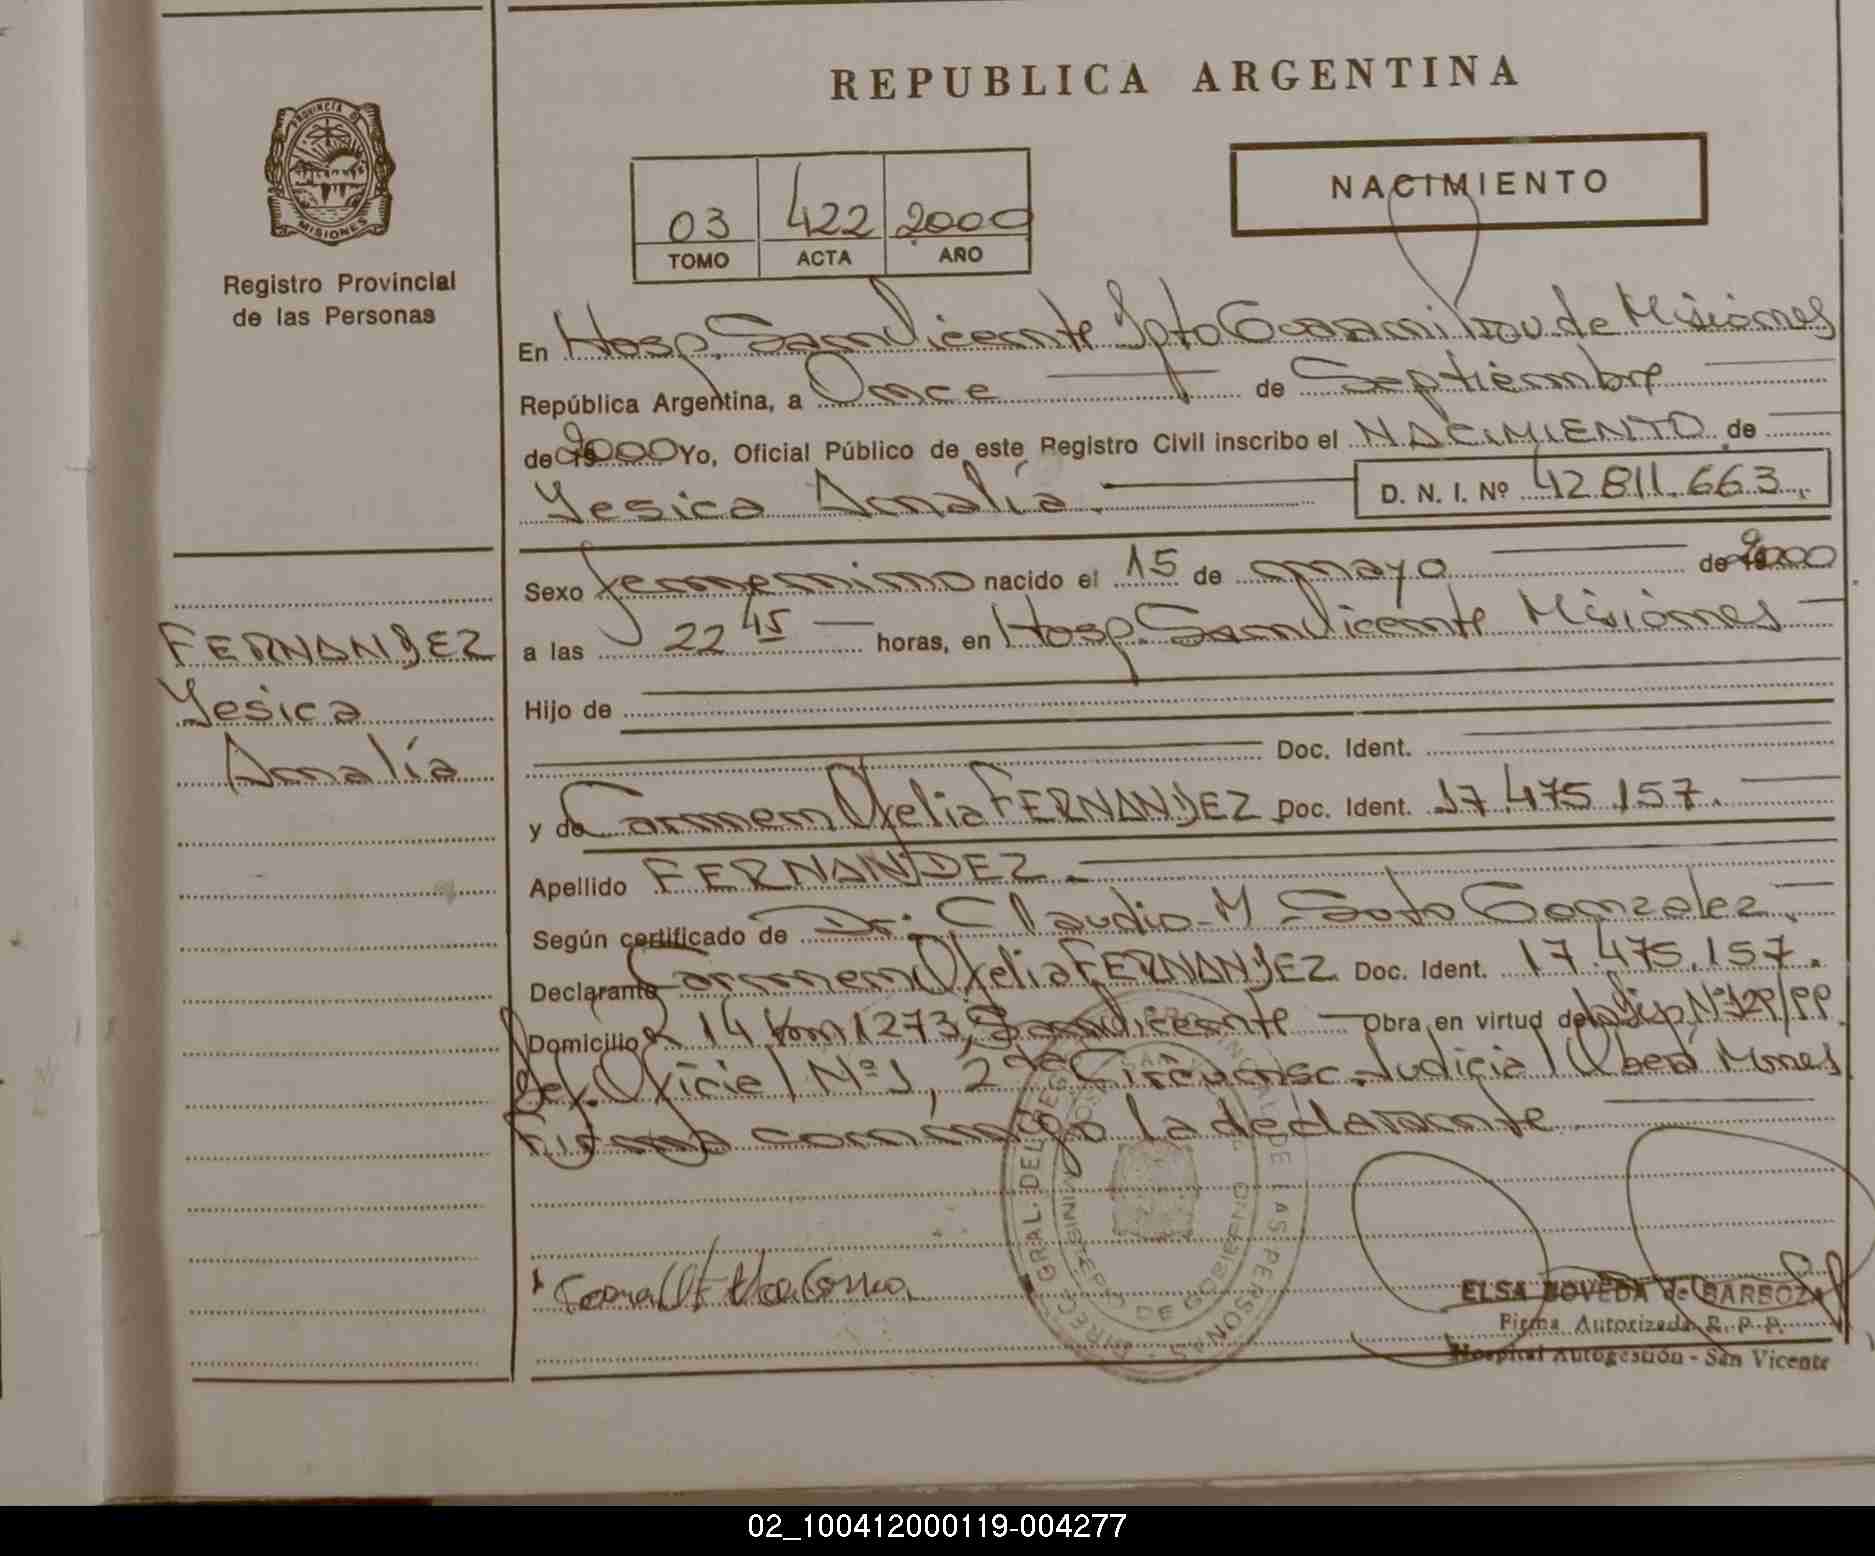 REPUBLICA ARGENTINA
PROVINCIA DE
MISIONES
Registro Provincial
de las Personas
NACIMIENTO
03 422 2000
TOMO ACTA AÑO
En Hosp. San Vicente Dpto Guaraní Prov de Misiones
República Argentina, a Once de Septiembre
de 2000 Yo, Oficial Público de este Registro Civil inscribo el NACIMIENTO de
Yesica Amalía. D. N. I. Nº 42.811.663.
Sexo femenino nacido el 15 de mayo de 2000
a las 22 45 horas, en Hosp. San Vicente Misiones
FERNANDEZ
Yesica
Amalía
Hijo de
Doc. Ident.
y de Carmen Ofelia FERNANDEZ Doc. Ident. 17.475.157.
Apellido FERNANDEZ.
Según certificado de Dr. Claudio M Soto Gonzalez.
Declarante Carmen Ofelia FERNANDEZ Doc. Ident. 17.475.157.
Domicilio R 14 Km 1273, San Vicente Obra en virtud de la Disp. Nº
Def. Oficial Nº 1, 2da Circunsc. Judicial Oberá Mnes
Firma conmigo la declarante
ELSA BOVEDA de BARBOZA
Firma Autorizada R. P. P.
Hospital Autogestión - San Vicente
02_100412000119-004277